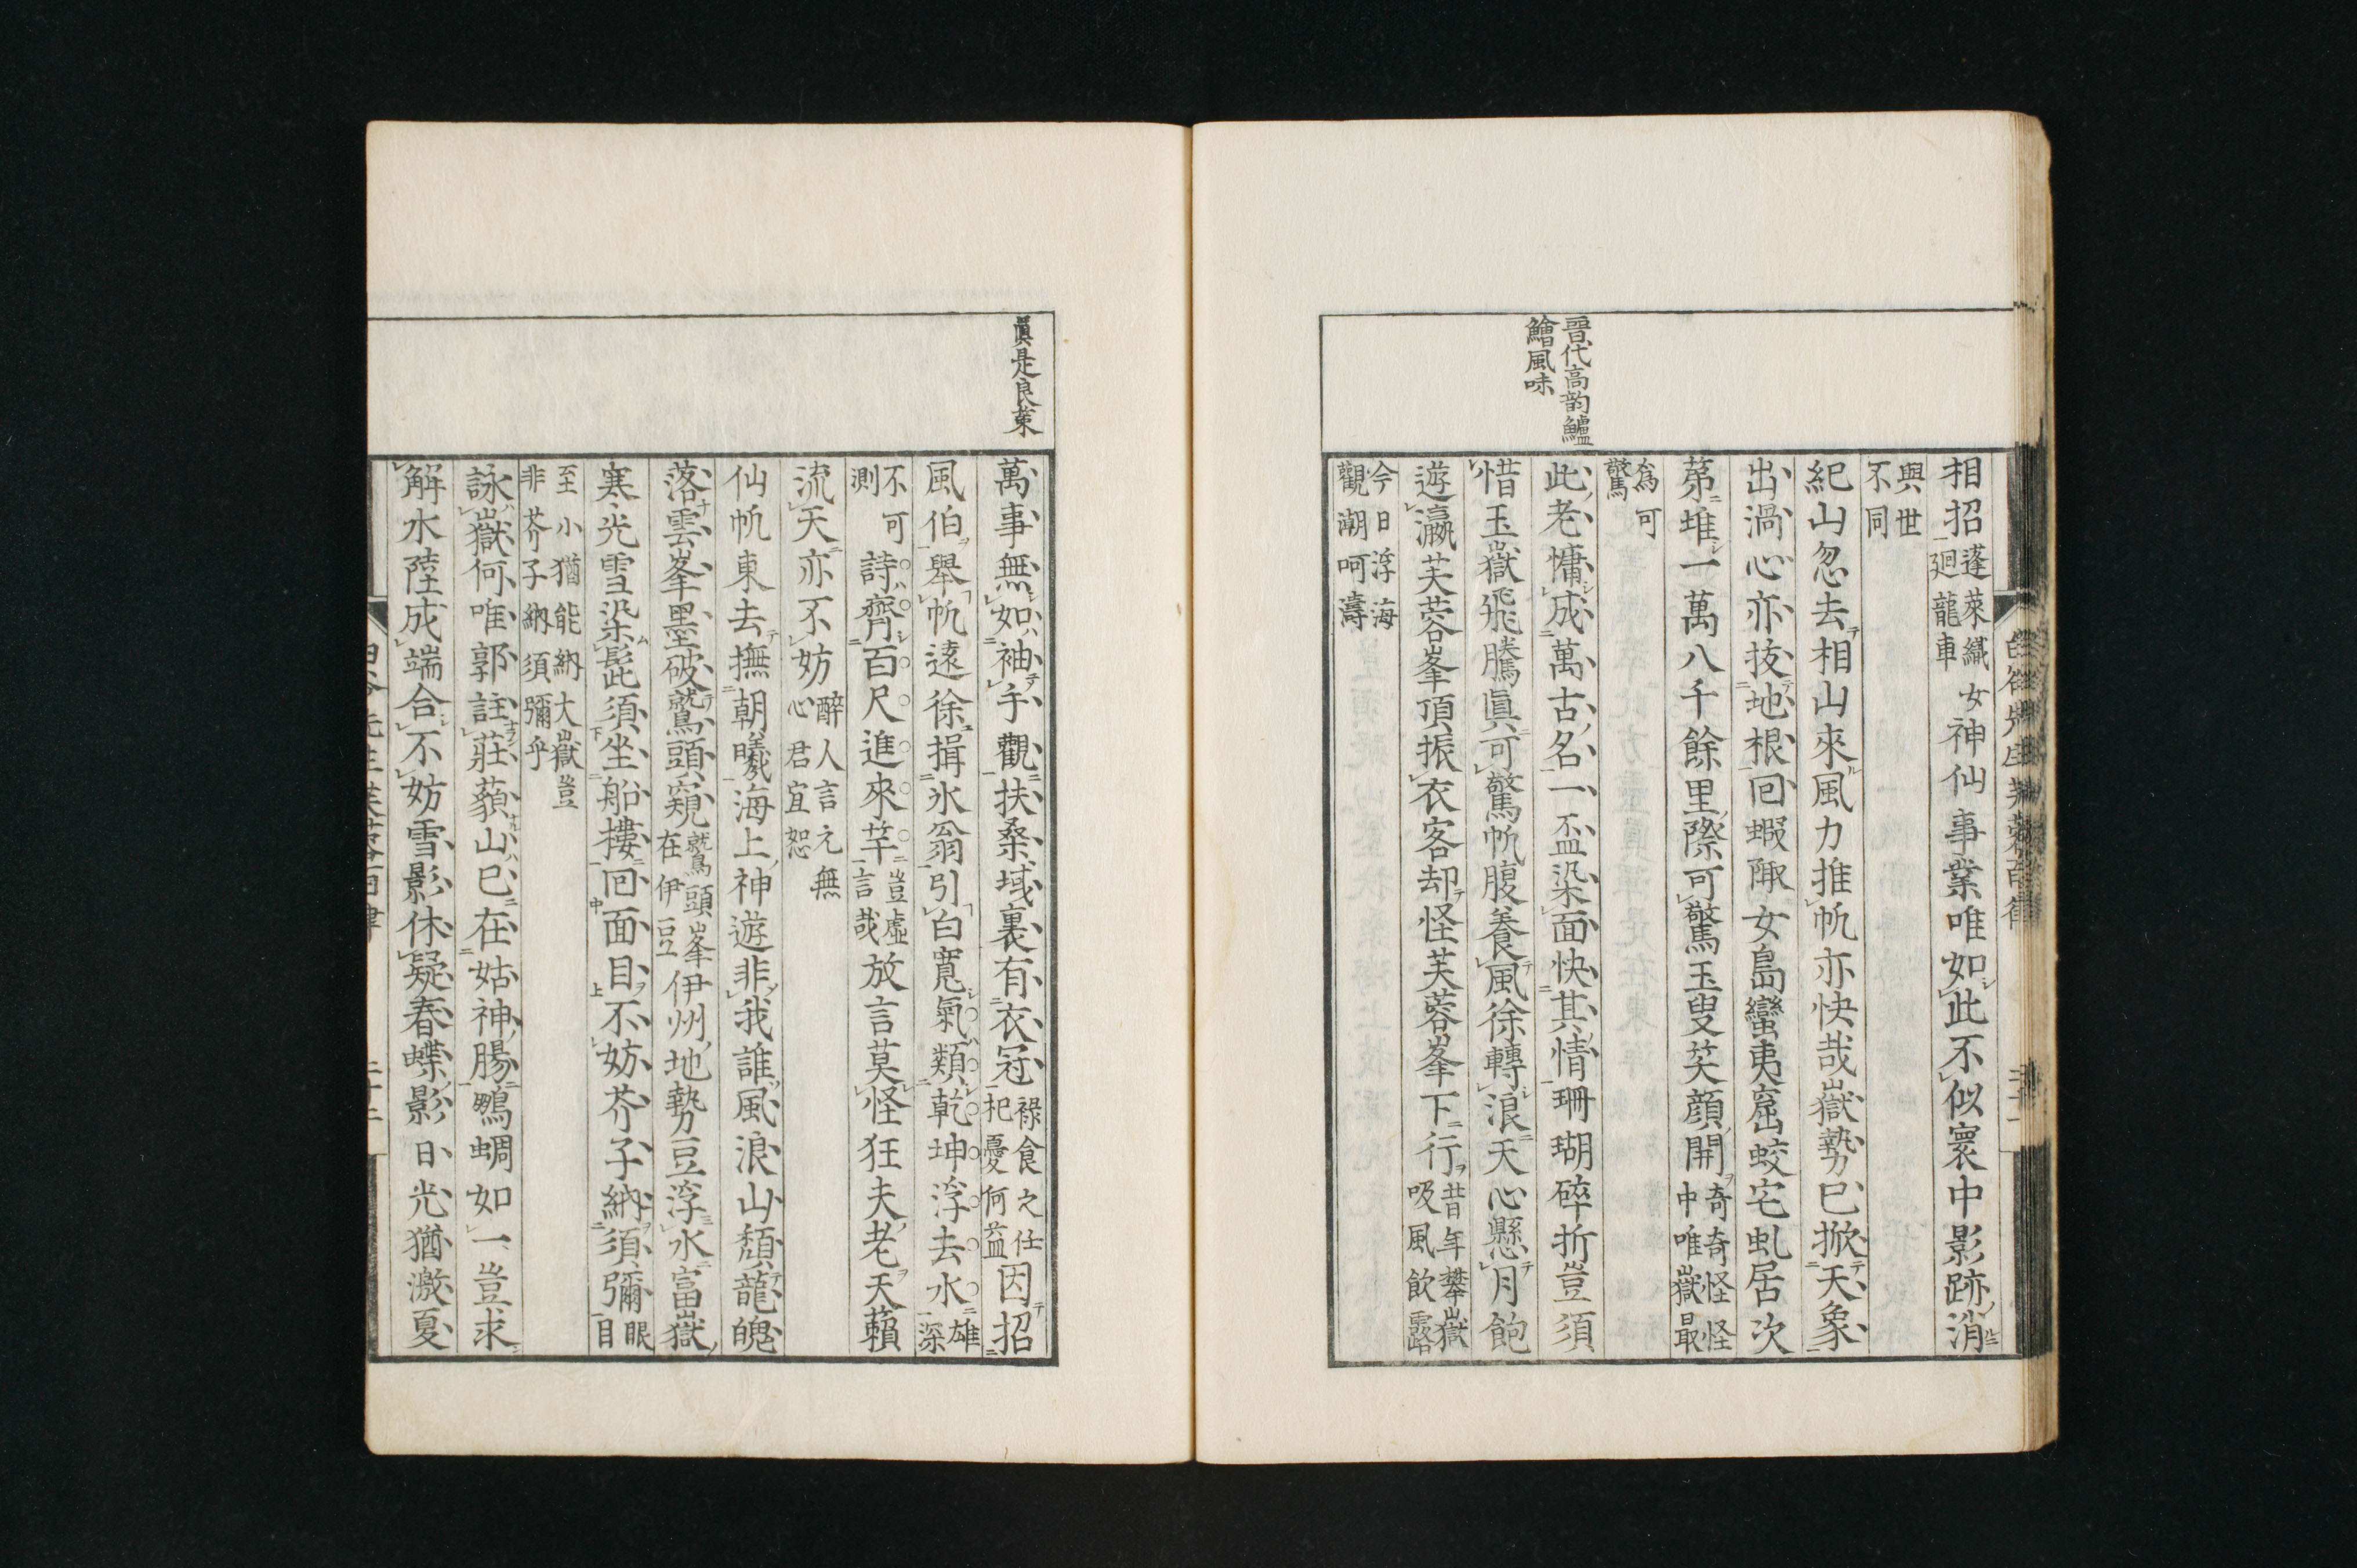 晉代高韵鱸
鱠風味
相招蓬萊纖女神仙事業唯如此不似寰中影跡消
廻龍車
與世
不同
紀山忽去相山來風力推帆亦快哉嶽勢已掀天象
出渦心亦拔地根回蝦陬女島蠻夷窟蛟宅虬居次
第堆一萬八千餘里際可驚玉叟笑顔開奇奇怪怪
中唯嶽最
爲可
驚
此老慵成萬古名一盃染面快其情珊瑚碎折豈須
惜玉嶽飛騰眞可驚帆腹養風徐轉浪天心懸月飽
遊瀛芙蓉峯頂振衣客却怪芙蓉峯下行昔年攀嶽
吸風飲露
今日浮海
觀潮呵濤
眞是良策
萬事無如袖手觀扶桑域裏有衣冠祿食之仕
杞憂何益
因招
風伯擧帆遠徐揖氷翁引白寬氣類乾坤浮去水雄
深
不可
測
詩齊百尺進來竿豈虛
言哉
放言莫怪狂夫老天籟
流天亦不妨醉人言元無
心君宜恕
仙帆東去撫朝曦海上神遊非我誰風浪山頽龍魄
落雲峯墨破鷲頭窺鷲頭峯
在伊豆
伊州地勢豆浮水富嶽
寒光雪染髭須坐船摟回面目不妨芥子納須彌眼
目
至小猶能納大嶽豈
非芥子納須彌乎
詠嶽何唯郭註莊藐山已在姑神腸鴨蜩如一豈求
解水陸成端合不妨雪影休疑春蝶影日光猶激夏